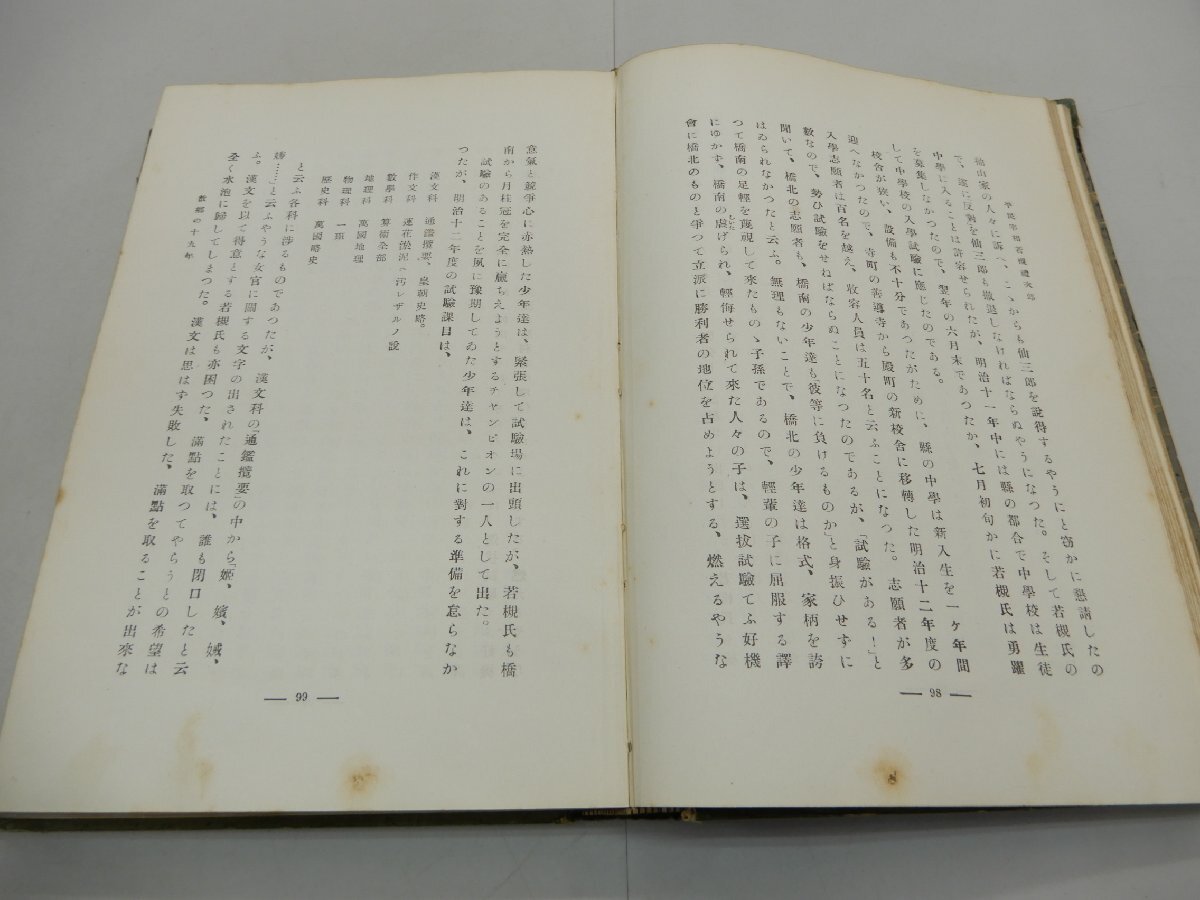 平民宰相若槻禮次郎
袖山家の人々に訴へ、こゝからも仙三郎を説得するやうにと窃かに懇請したの
で、遂に反對を仙三郎も撤退しなければならぬやうになつた。そして若槻氏の
中學に入ることは許容せられたが、明治十一年中には縣の都合で中學校は生徒
を募集しなかつたので、翌年の六月末であつたか、七月初旬かに若槻氏は勇躍
して中學校の入學試驗に應じたのである。
校舍が狹い、設備も不十分であつたがために、縣の中學は新入生を一ケ年間
迎へなかつたので、寺町の善導寺から殿町の新校舍に移轉した明治十二年度の
入學志願者は百名を越え、收容人員は五十名と云ふことになつた。志願者が多
數なので、勢ひ試驗をせねばならぬことになつたのであるが、「試驗がある！」と
聞いて、橋北の志願者も、橋南の少年達も「彼等に負けるものか」と身振ひせずに
はゐられなかつたと云ふ。無理もないことで、橋北の少年達は格式、家柄を誇
つて橋南の足輕を蔑視して來たものゝ子孫であるので、輕輩の子に屈服する譯
にゆかず、橋南の虐げられ、輕侮せられて來た人々の子は、選拔試驗てふ好機
會に橋北のものと爭つて立派に勝利者の地位を占めようとする、燃えるやうな
98
意氣と競爭心に赤熱した少年達は、緊張して試驗場に出頭したが、若槻氏も橋
南から月桂冠を完全に贏ちえようとするチャンピオンの一人として出た。
試驗のあることを夙に豫期してゐた少年達は、これに對する準備を怠らなか
つたが、明治十二年度の試驗課目は、
漢文科　通鑑攬要、皇朝史略。
作文科　蓮花淤泥ニ汚レザルノ說
數學科　算術全部
地理科　萬國地理
物理科　一項
歷史科　萬國略史
と云ふ各科に渉るものであつたが、漢文科の「通鑑攬要」の中から「姬、嬪、娍、
嬙……」と云ふやうな女官に關する文字の出されたことには、誰も閉口したと云
ふ。漢文を以て得意とする若槻氏も亦困つた、滿點を取つてやらうとの希望は
全く水泡に歸してしまつた。漢文は思はず失敗した、滿點を取ることが出來な
故鄕の十九年
99